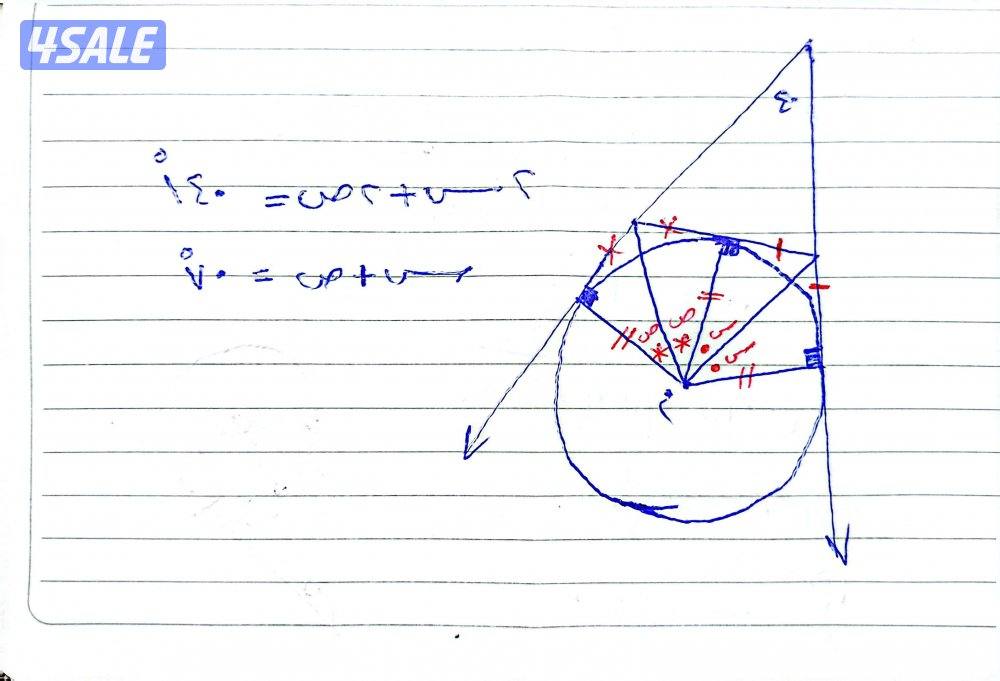 ٤٠
٢س + ٢ص = ١٤٠°
س + ص = ٧٠°
ص ص س س
4SALE